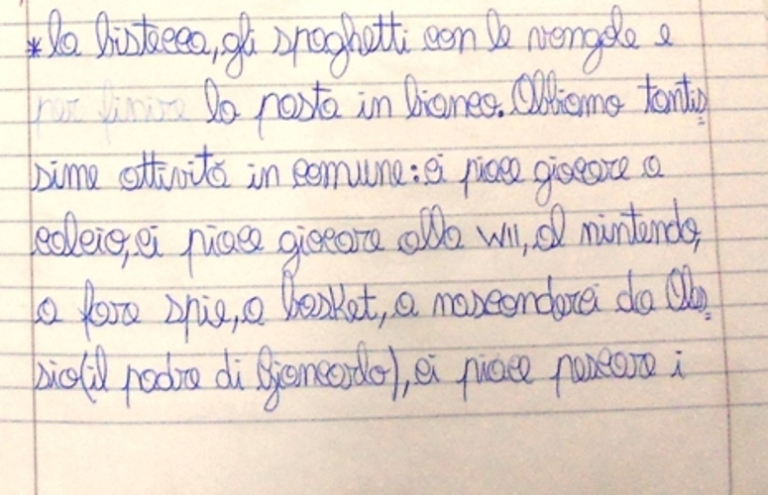 *la bistecca, gli spaghetti con le vongole e
per finire la pasta in bianco. Abbiamo tantis=
sime attività in comune: ci piace giocare a
calcio, ci piace giocare alla WII, al nintendo,
a fare spie, a basket, a nasconderci da Ales=
sio (il padre di Giancarlo), ci piace pescare i